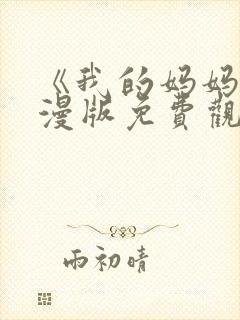 《我的妈妈
漫版免費觀
雨初晴